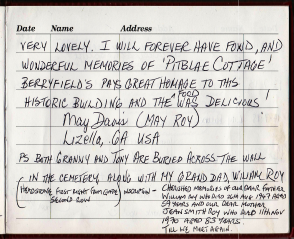 Date Name Address
VERY LOVELY. I WILL FOREVER HAVE FOND, AND
WONDERFUL MEMORIES OF 'PITBLAE COTTAGE'
BERRYFIELD'S PAYS GREAT HOMAGE TO THIS
FOOD
HISTORIC BUILDING AND THE WAS DELICIOUS!
May Davis (MAY ROY)
Lizella, GA USA
PS BOTH GRANNY AND TONY ARE BURIED ACROSS THE WALL
IN THE CEMETERY ALONG WITH MY GRAND DAD, WILLIAM ROY
(HEADSTONE FIRST RIGHT FROM GATE) INSCRIPTION - CHERISHED MEMORIES OF OUR DEAR FATHER
SECOND ROW WILLIAM ROY WHO DIED AUG 1947 AGED
59 YEARS AND OUR DEAR MOTHER
JEAN SMITH ROY WHO DIED 11TH NOV
1970 AGED 83 YEARS.
TILL WE MEET AGAIN.